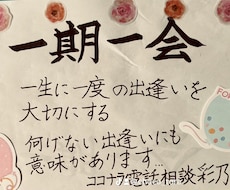 一期一会
一生に一度の出逢いを
大切にする
何げない出逢いにも
意味があります…
ココナラ電話相談彩乃